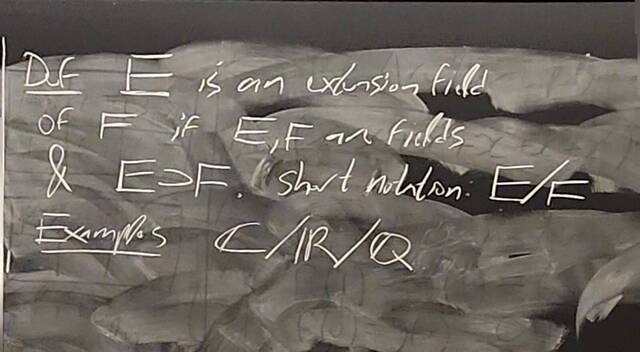 Def E is an extension field
of F if E, F are fields
& E⊃F. Short notation: E/F
Examples ℂ/ℝ/ℚ